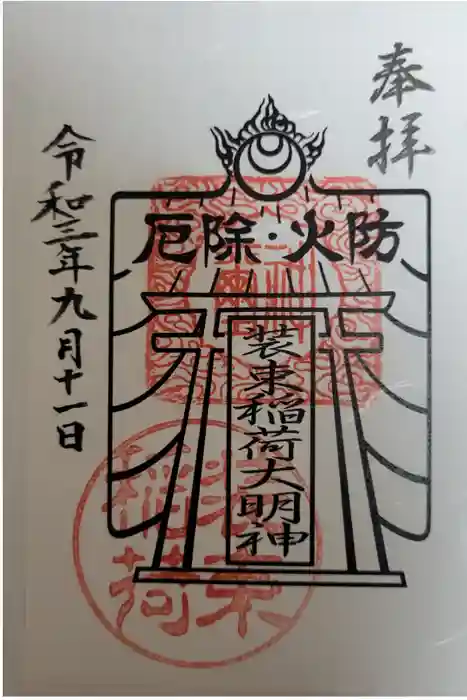 奉拝
防火・除厄
装束稲荷大明神
令和三年九月十一日
装束
稲荷